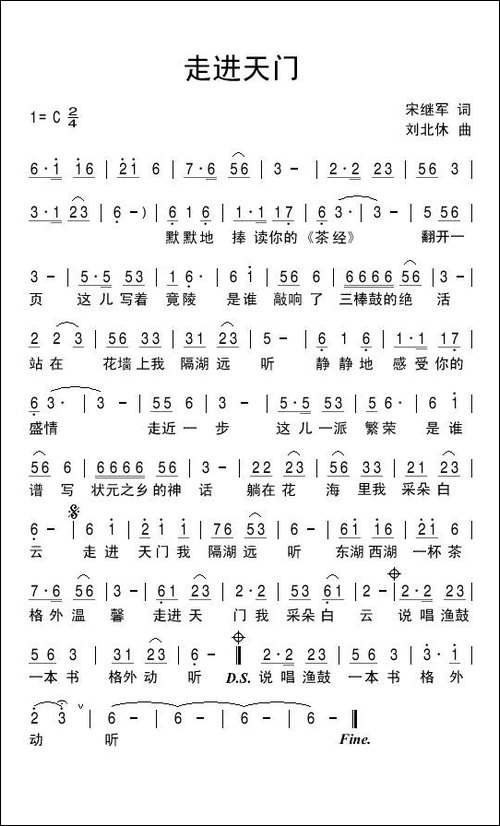 走进天门
1= C 2/4
宋继军 词
刘北休 曲
6·i i6 | 2i 6 | 7·6 56 | 3 - | 2·2 23 | 56 3 |
3·1 23 | 6 - ) | 6 1 6 | 1·1 17 | 6 3· | 3 - | 5 56 |
默默地 捧 读你的《茶 经》 翻开一
3 - | 5·5 53 | 1 6· | 6 i | 5 56 | 6666 56 | 6 - |
页 这儿写着 竟陵 是谁 敲响了 三棒鼓的绝 活
2 23 | 56 33 | 31 23 | 5 - | 6 1 6 | 1·1 17 |
站在 花墙上我 隔湖远 听 静静地 感受你的
6 3· | 3 - | 55 6 | 3 - | 5·5 53 | 1 6· | 6 i |
盛情 走近一 步 这儿一派 繁荣 是谁
56 6 | 6666 56 | 3 - | 22 23 | 5 33 | 21 23 |
谱 写 状元之乡的神 话 躺在花 海 里我 采朵白
6 - | 6 i | 2i i | 76 53 | 6 - | 6i 56 | 2i 6 |
云 走进 天门我 隔湖远 听 东湖西湖 一杯茶
7·6 56 | 3 - | 6i 23 | 2·2 | 23 53 6i | 2 - | 2·2 23 |
格外温 馨 走近天 门我 采朵白 云 说唱渔鼓
56 3 | 3·i 23 | i - | 2·2 23 | 56 3 | 3· i |
一本书 格外动 听 D.S. 说唱渔鼓 一本书 格 外
2 3 ∨ | 6 - | 6 - | 6 - | 6 - ‖
动 听 Fine.